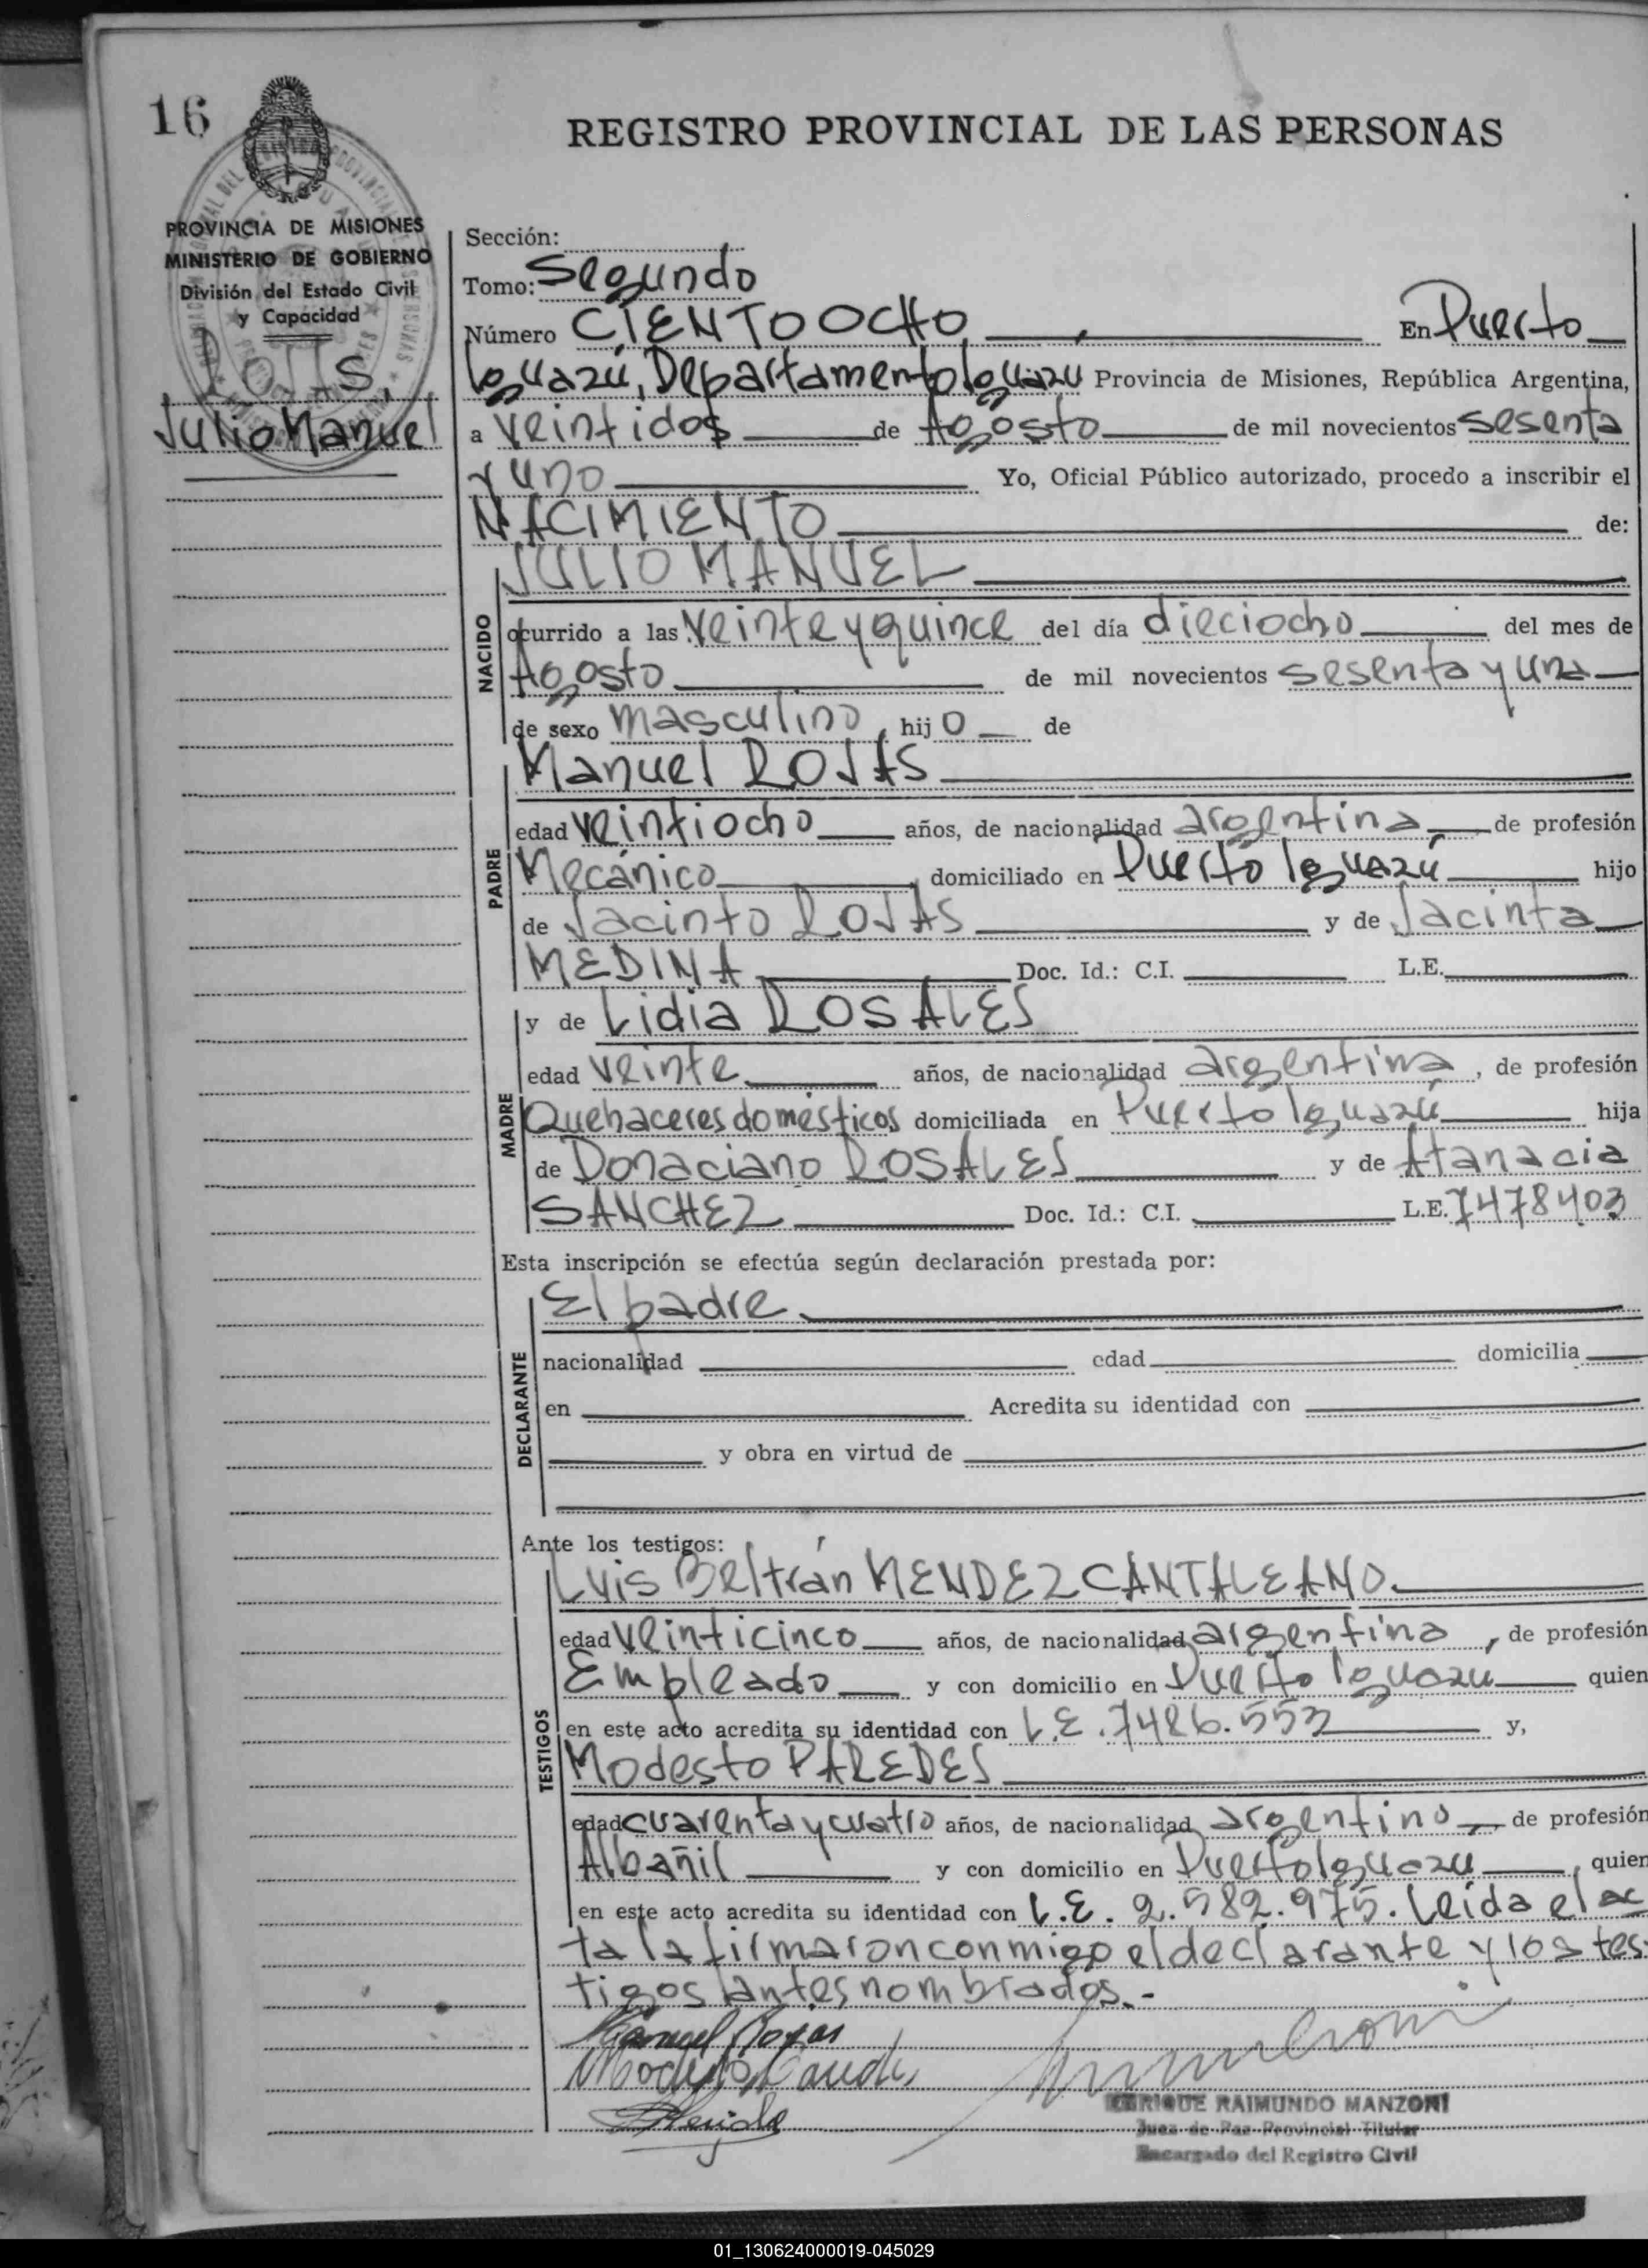 16
REGISTRO PROVINCIAL DE LAS PERSONAS
PROVINCIA DE MISIONES
MINISTERIO DE GOBIERNO
División del Estado Civil
y Capacidad
Julio Manuel
Sección:
Tomo: Segundo
Número CIENTO OCHO, En Puerto
Iguazú, Departamento Iguazú Provincia de Misiones, República Argentina,
a veintidos de Agosto de mil novecientos sesenta
y uno Yo, Oficial Público autorizado, procedo a inscribir el
NACIMIENTO de:
JULIO MANUEL
NACIDO
ocurrido a las veinte y quince del día dieciocho del mes de
Agosto de mil novecientos sesenta y uno
de sexo masculino, hijo de
Manuel ROJAS
PADRE
edad veintiocho años, de nacionalidad argentina, de profesión
Mecánico, domiciliado en Puerto Iguazú hijo
de Jacinto ROJAS y de Jacinta
MEDINA Doc. Id.: C.I. L.E.
y de Lidia ROSALES
MADRE
edad veinte años, de nacionalidad argentina, de profesión
Quehaceres domésticos domiciliada en Puerto Iguazú hija
de Donaciano ROSALES y de Atanacia
SANCHEZ Doc. Id.: C.I. L.E. 7478403
Esta inscripción se efectúa según declaración prestada por:
El padre
DECLARANTE
nacionalidad edad domicilia
en Acredita su identidad con
y obra en virtud de
Ante los testigos:
Luis Beltrán MENDEZ CANTALEANO
TESTIGOS
edad veinticinco años, de nacionalidad argentina, de profesión
Empleado y con domicilio en Puerto Iguazú quien
en este acto acredita su identidad con L.E. 7486.553 y,
Modesto PAREDES
edad cuarenta y cuatro años, de nacionalidad argentino, de profesión
Albañil y con domicilio en Puerto Iguazu, quien
en este acto acredita su identidad con L.E. 2.582.975. Leída el ac
ta la firmaron conmigo el declarante y los tes-
tigos antes nombrados.-
Manuel Rojas
ENRIQUE RAIMUNDO MANZONI
Juez de Paz Provincial Titular
Encargado del Registro Civil
01_130624000019-045029